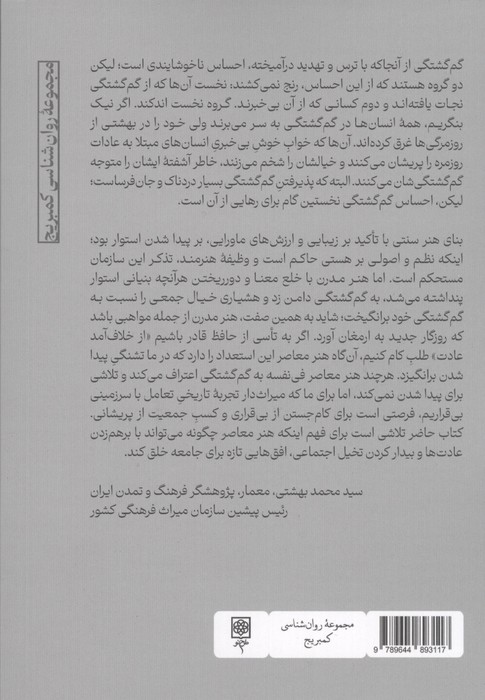 مجموعهٔ روان‌شناسی کمبریج
گم‌گشتگی از آنجاکه با ترس و تهدید درآمیخته، احساس ناخوشایندی است؛ لیکن
دو گروه هستند که از این احساس، رنج نمی‌کشند؛ نخست آن‌ها که از گم‌گشتگی
نجات یافته‌اند و دوم کسانی که از آن بی‌خبرند. گروه نخست اندکند. اگر نیک
بنگریم، همهٔ انسان‌ها در گم‌گشتگی به سر می‌برند ولی خود را در بهشتی از
روزمرگی‌ها غرق کرده‌اند. آن‌ها که خواب خوشِ بی‌خبریِ انسان‌های مبتلا به عادات
روزمره را پریشان می‌کنند و خیالشان را شخم می‌زنند، خاطر آشفتهٔ ایشان را متوجه
گم‌گشتگی‌شان می‌کنند. البته که پذیرفتنِ گم‌گشتگی بسیار دردناک و جان‌فرساست؛
لیکن، احساس گم‌گشتگی نخستین گام برای رهایی از آن است.
بنای هنر سنتی با تأکید بر زیبایی و ارزش‌های ماورایی، بر پیدا شدن استوار بود؛
اینکه نظم و اصولی بر هستی حاکم است و وظیفهٔ هنرمند، تذکر این سازمان
مستحکم است. اما هنر مدرن با خلع معنا و دورریختن هرآنچه بنیانی استوار
پنداشته می‌شد، به گم‌گشتگی دامن زد و هشیاری خیال جمعی را نسبت به
گم‌گشتگی خود برانگیخت؛ شاید به همین صفت، هنر مدرن از جمله مواهبی باشد
که روزگار جدید به ارمغان آورد. اگر به تأسی از حافظ قادر باشیم «از خلاف‌آمد
عادت» طلبِ کام کنیم، آن‌گاه هنر معاصر این استعداد را دارد که در ما تشنگیِ پیدا
شدن برانگیزد. هرچند هنر معاصر فی‌نفسه به گم‌گشتگی اعتراف می‌کند و تلاشی
برای پیدا شدن نمی‌کند، اما برای ما که میراث‌دار تجربهٔ تاریخیِ تعامل با سرزمینی
بی‌قراریم، فرصتی است برای کام‌جستن از بی‌قراری و کسب جمعیت از پریشانی.
کتاب حاضر تلاشی است برای فهم اینکه هنر معاصر چگونه می‌تواند با برهم‌زدن
عادت‌ها و بیدار کردن تخیل اجتماعی، افق‌هایی تازه برای جامعه خلق کند.
سید محمد بهشتی، معمار، پژوهشگر فرهنگ و تمدن ایران
رئیس پیشین سازمان میراث فرهنگی کشور
مجموعهٔ روان‌شناسی
کمبریج
9 789644 893117